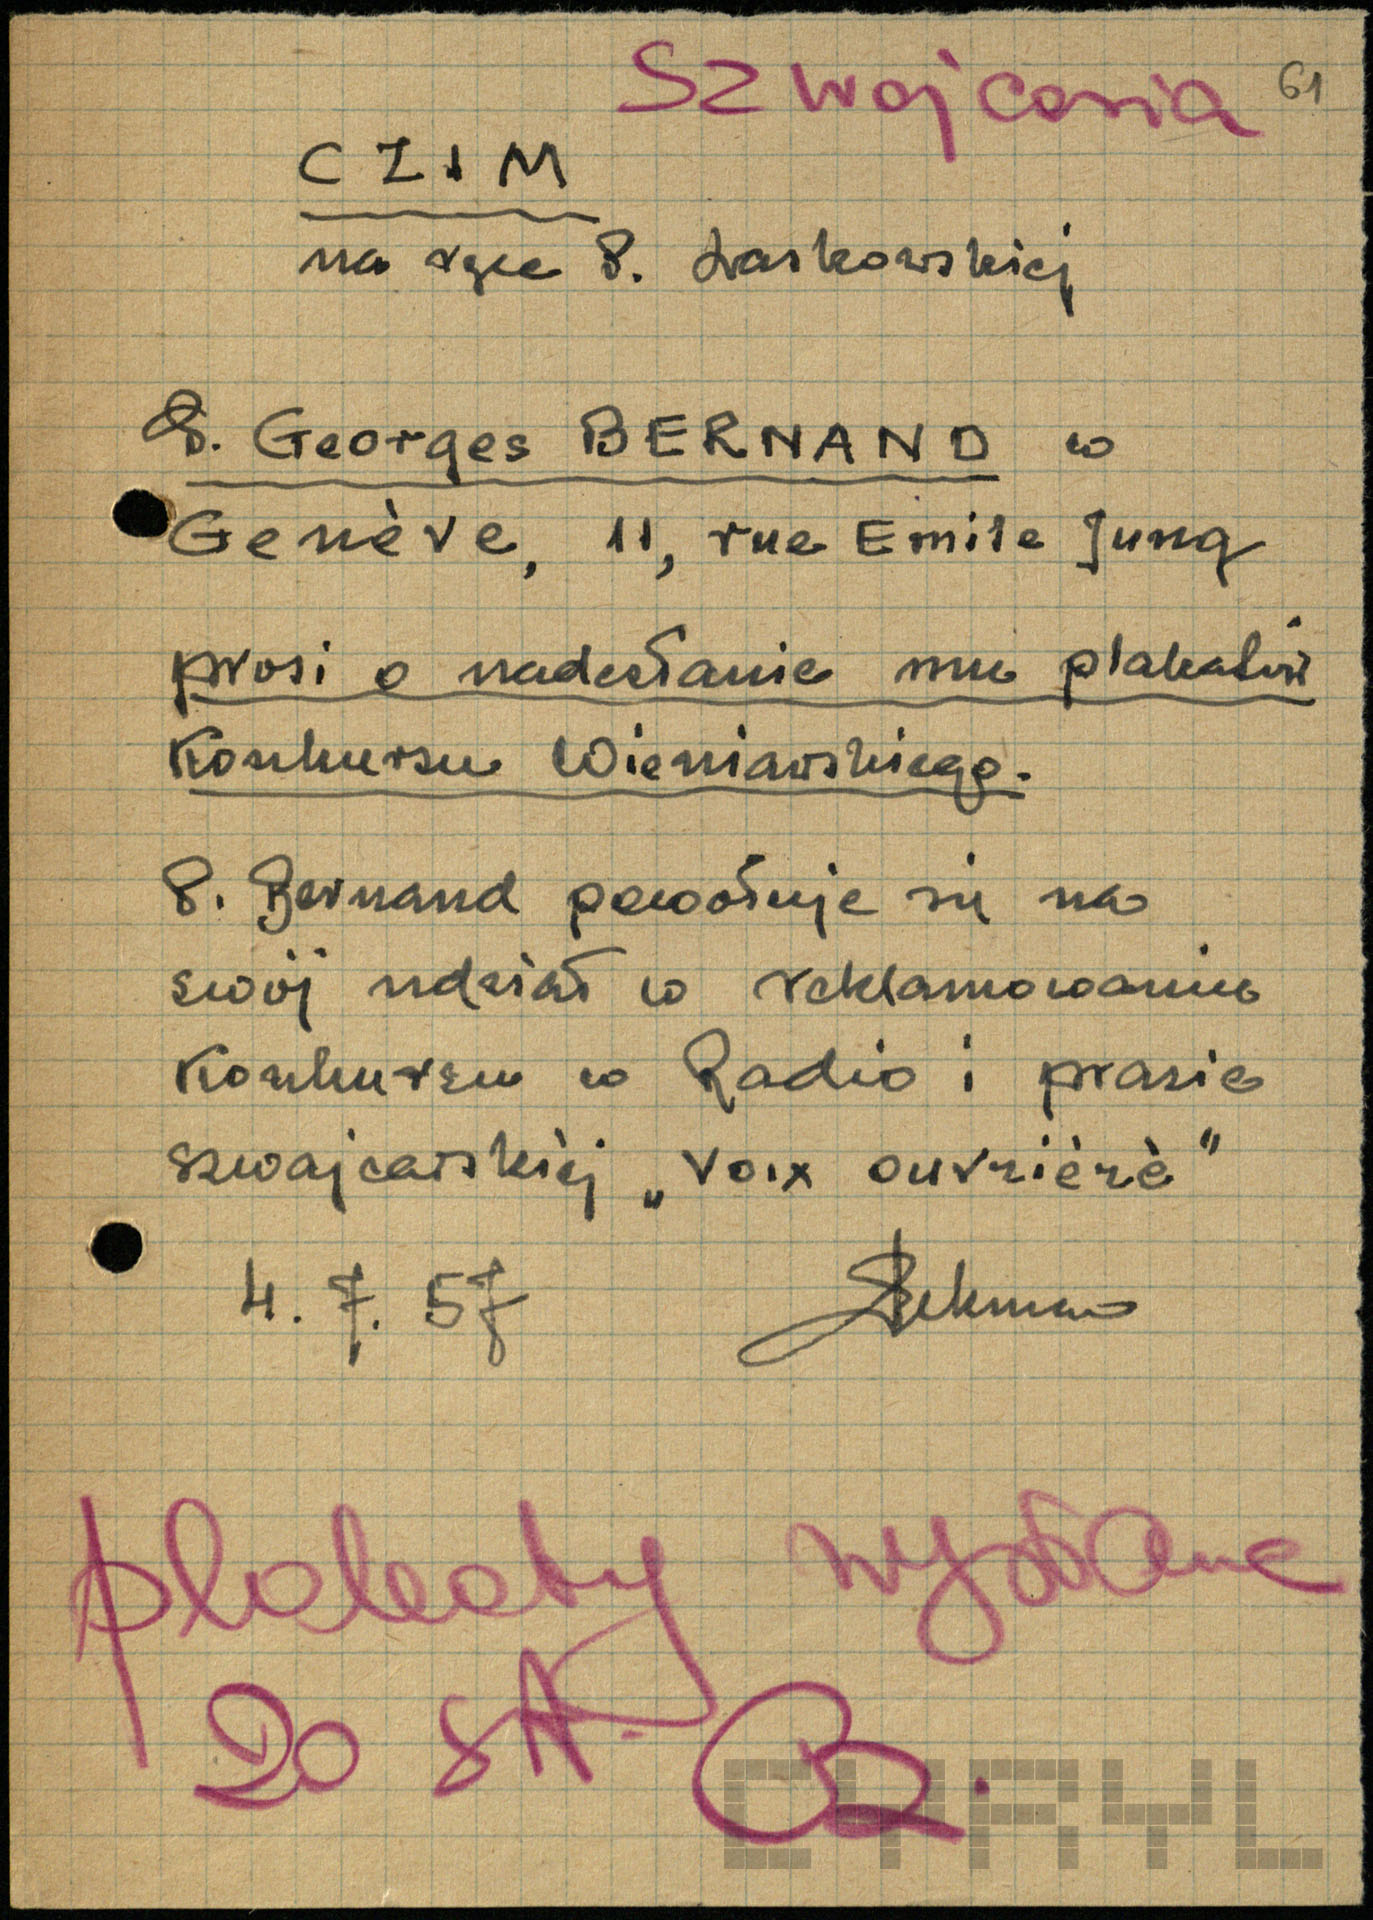 Szwajcaria 61
CZIM
na ręce P. Laskowskiej
P. Georges BERNAND w
Genève, 11, rue Emile Jung
prosi o nadesłanie mu plakatów
Konkursu Wieniawskiego.
P. Bernand powołuje się na
swój udział w reklamowaniu
Konkursu w Radio i prasie
szwajcarskiej „Voix ouvrière"
4. 7. 57
plakaty wysłane
20 szt.
CYRYL